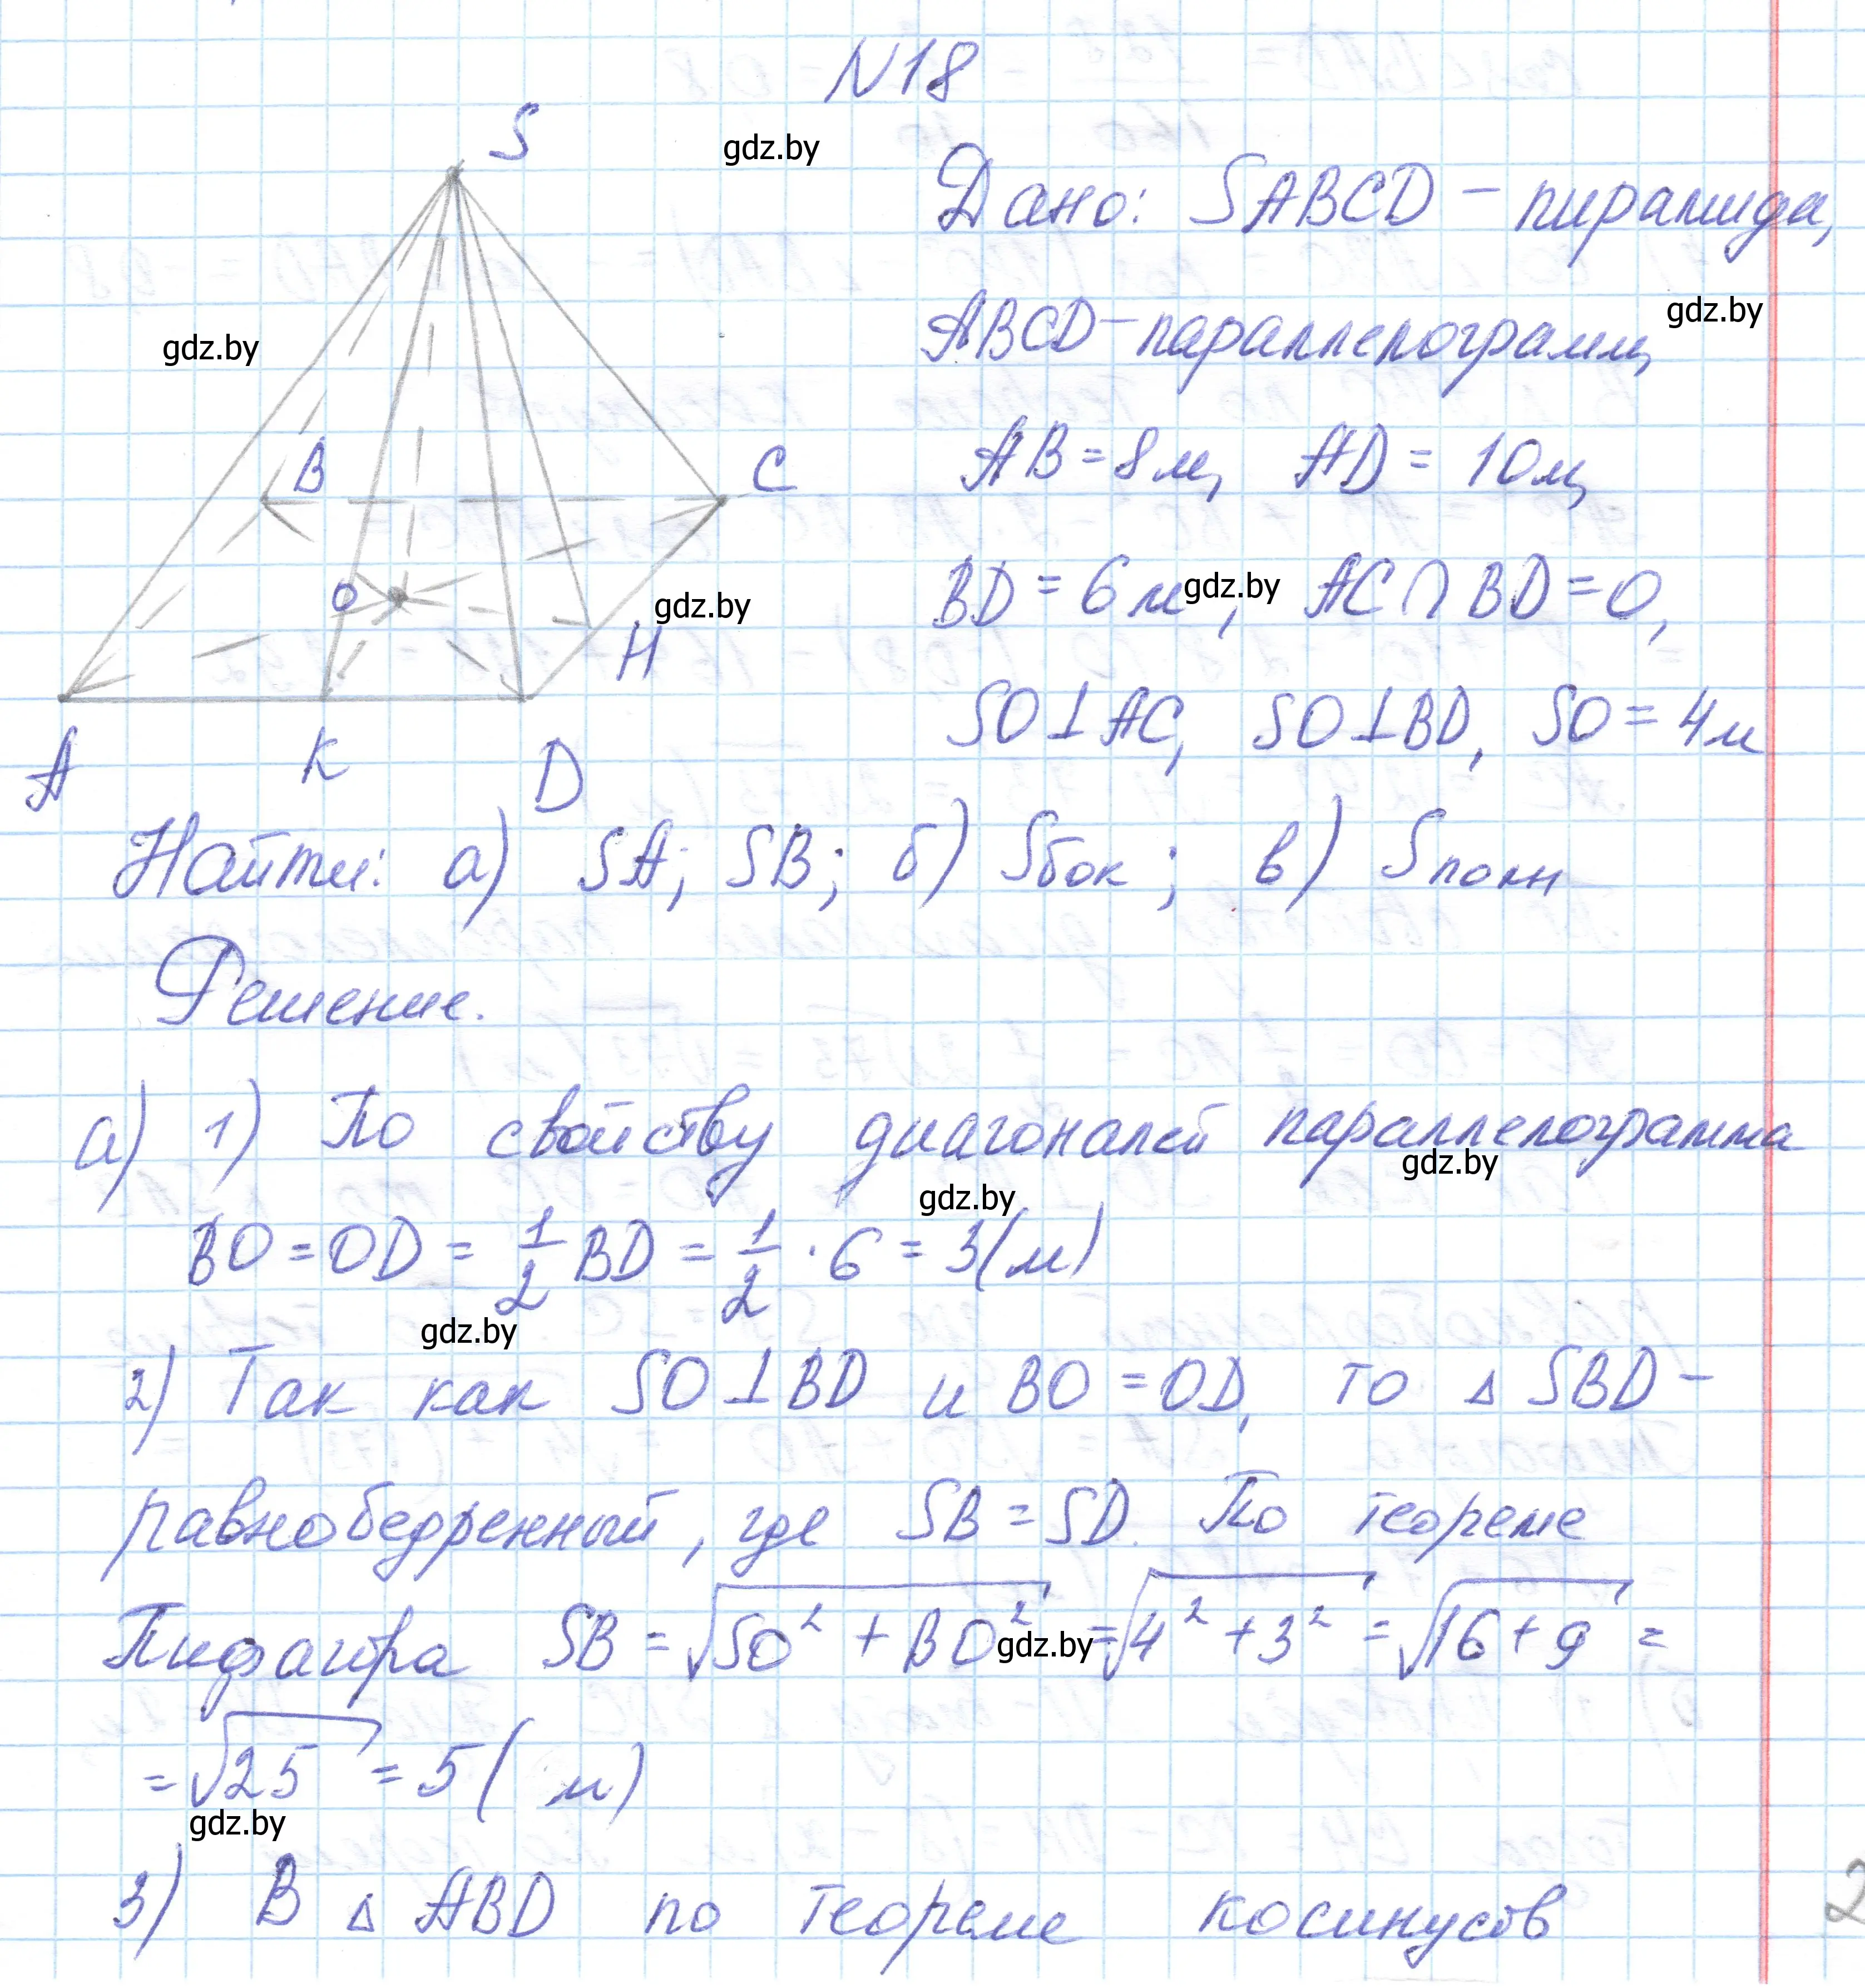 N18
S
gdz.by
Дано: SABCD - пирамида,
gdz.by
ABCD - параллелограмм,
gdz.by
B
C
AB = 8 м, AD = 10 м,
O
gdz.by
H
BD = 6 м, AC ∩ BD = O,
gdz.by
SO ⊥ AC, SO ⊥ BD, SO = 4 м
A K D
Найти: а) SA; SB; б) Sбок; в) Sполн
Решение.
а) 1) По свойству диагоналей параллелограмма
gdz.by
gdz.by
BO = OD = 1/2 BD = 1/2 · 6 = 3 (м)
gdz.by
2) Так как SO ⊥ BD и BO = OD, то △ SBD -
равнобедренный, где SB = SD. По теореме
Пифагора SB = √SO² + BO² = √4² + 3² = √16 + 9 =
gdz.by
= √25 = 5 ( м)
gdz.by
3) В △ ABD по теореме косинусов
2